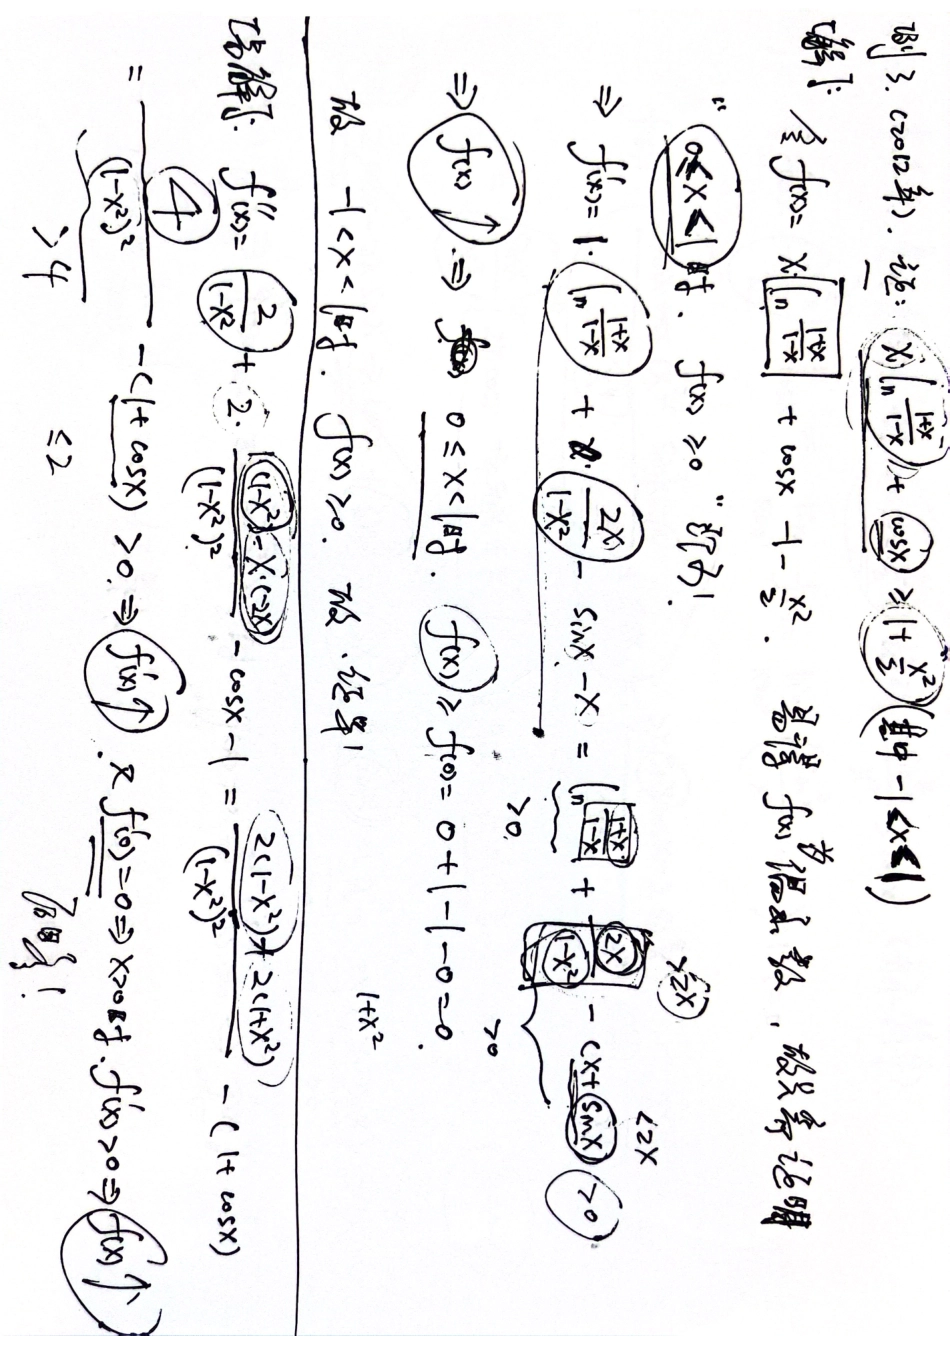 例3. (2012年). 证: x ln (1+x)/(1-x) + cosx ≥ 1 + x²/2 (其中 -1<x<1)
解1: 令 f(x) = x·ln (1+x)/(1-x) + cosx - 1 - x²/2. 易得 f(x)为偶函数, 故只需证明
"0≤x<1时. f(x) ≥ 0" 即可!
⇒ f'(x) = 1·ln (1+x)/(1-x) + x· 2x/(1-x²) - sinx - x = ln (1+x)/(1-x) + 2x/(1-x²) - (x+sinx) >0
>0
>2x
>0
<2x
⇒ f(x)↗ ⇒ 0≤x<1时. f(x) ≥ f(0) = 0+1-1-0=0.
故 -1<x<1时. f(x)≥0. 故.得证!
1+x²
f''(x) = 2/(1-x²) + 2· ((1-x²)-x·(-2x))/(1-x²)² - cosx - 1 = (2(1-x²)+2(1+x²))/(1-x²)² - (1+cosx)
= 4/(1-x²)² - (1+cosx) >0. ⇒ f'(x)↗. 又 f'(0)=0 ⇒ x>0时. f'(x)>0 ⇒ f(x)↗
>4
≤2
得证!